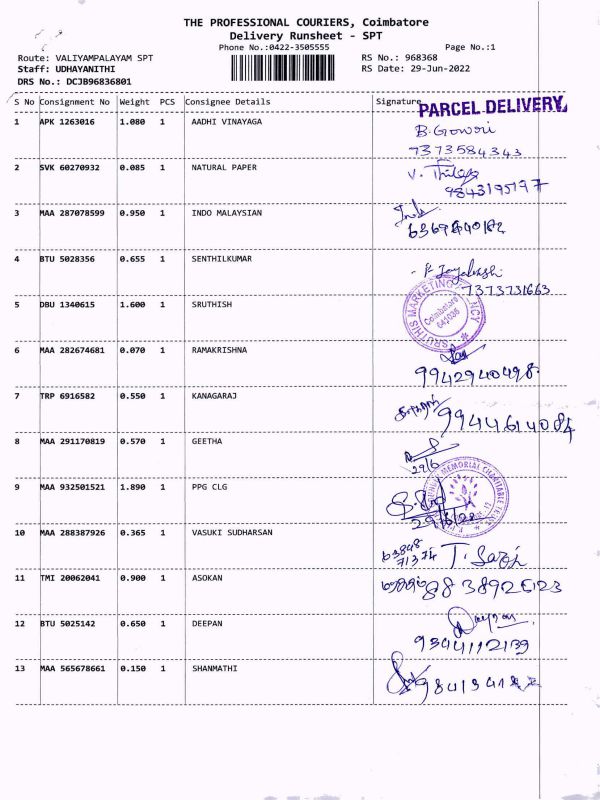 THE PROFESSIONAL COURIERS, Coimbatore
Delivery Runsheet - SPT
Phone No.:0422-3505555 Page No.:1
Route: VALIYAMPALAYAM SPT RS No.: 968368
Staff: UDHAYANITHI RS Date: 29-Jun-2022
DRS No.: DCJB96836801
S No Consignment No Weight PCS Consignee Details Signature
PARCEL DELIVERY
1 APK 1263016 1.080 1 AADHI VINAYAGA B. Gowri
7373584343
2 SVK 60270932 0.085 1 NATURAL PAPER
9843195197
3 MAA 287078599 0.950 1 INDO MALAYSIAN
4 BTU 5028356 0.655 1 SENTHILKUMAR
7373731663
5 DBU 1340615 1.600 1 SRUTHISH
SRUTHIS MARKETING
Coimbatore
641035
6 MAA 282674681 0.070 1 RAMAKRISHNA
9942940498
7 TRP 6916582 0.550 1 KANAGARAJ
9944614084
8 MAA 291170819 0.570 1 GEETHA
29/6
9 MAA 932501521 1.890 1 PPG CLG
MEMORIAL CHARITABLE TRUST
29/6/22
10 MAA 288387926 0.365 1 VASUKI SUDHARSAN
63848
71374
11 TMI 20062041 0.900 1 ASOKAN
12 BTU 5025142 0.650 1 DEEPAN
9344112139
13 MAA 565678661 0.150 1 SHANMATHI